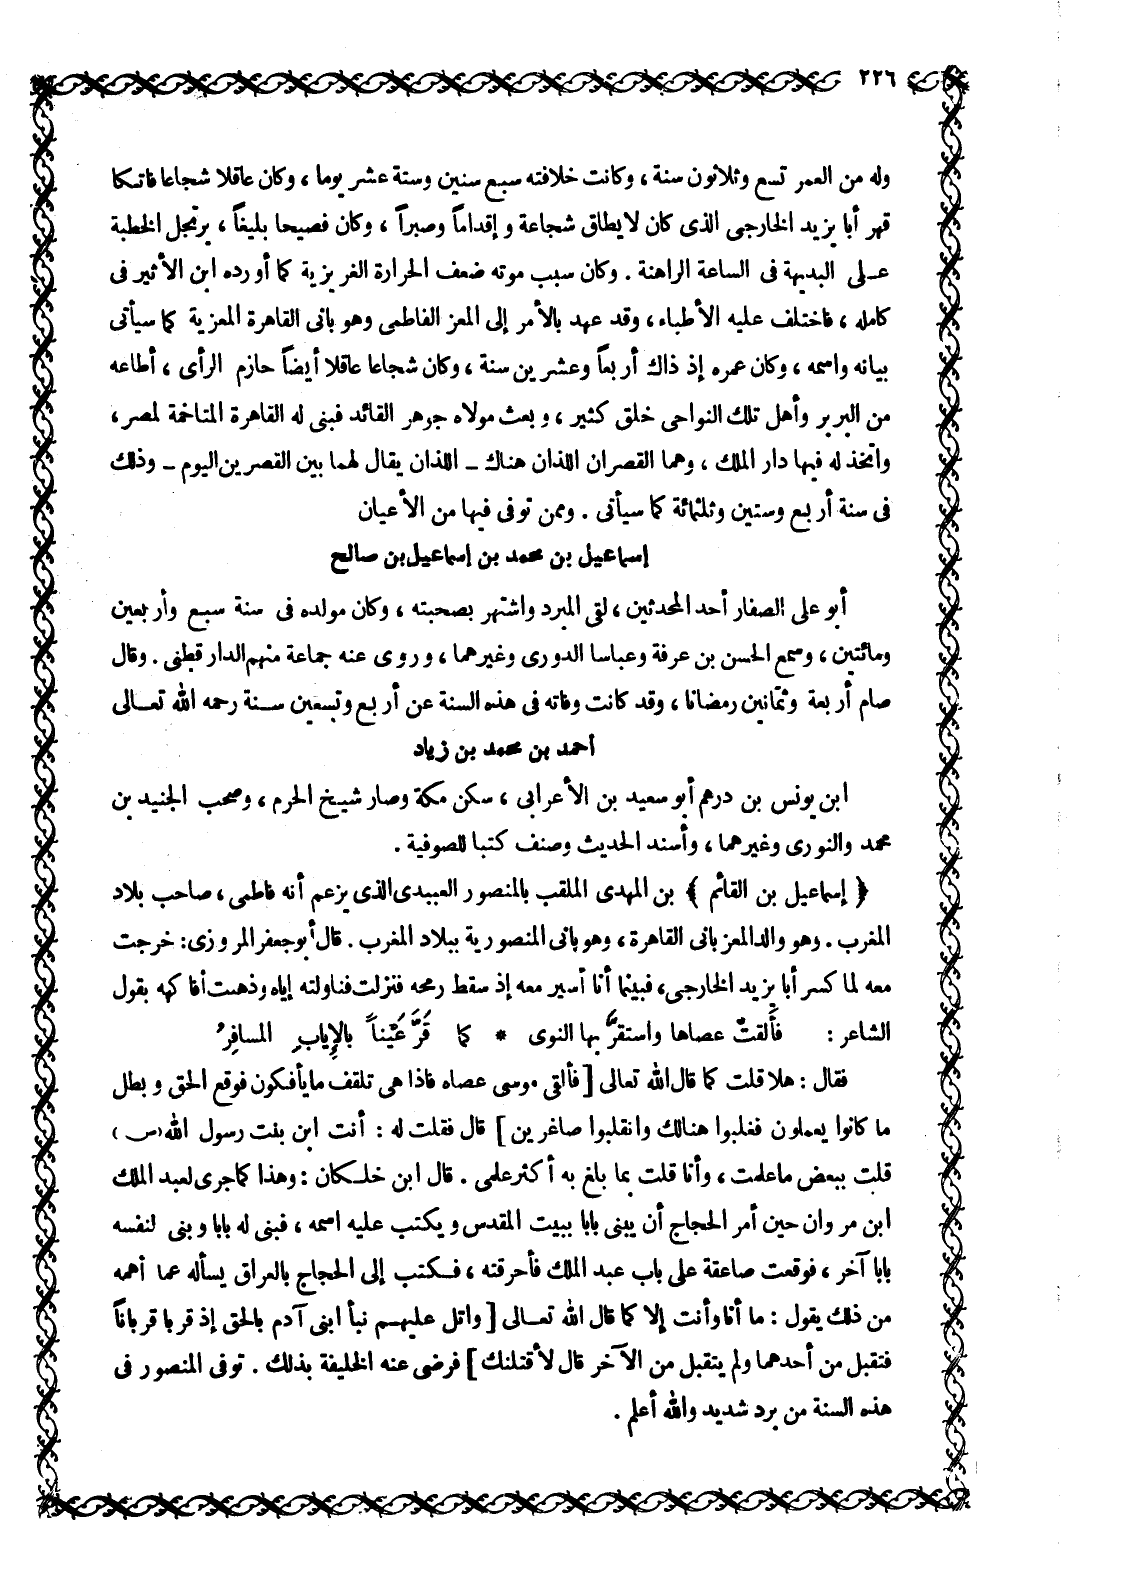 ٢٢٦
وله من العمر تسع وثلاثون سنة ، وكانت خلافته سبع سنين وستة عشر يوما ، وكان عاقلا شجاعا فاتكا
قهر أبا يزيد الخارجى الذى كان لايطاق شجاعة و إقداماً وصبراً ، وكان فصيحا بليغاً ، يرتجل الخطبة
عـلى البديهة فى الساعة الراهنة . وكان سبب موته ضعف الحرارة الغريزية كما أورده ابن الأثير فى
كامله ، فاختلف عليه الأطباء ، وقد عهد بالأمر إلى المعز الفاطمى وهو بانى القاهرة المعزية كما سيأتى
بيانه واسمه ، وكان عمره إذ ذاك أربعاً وعشرين سنة ، وكان شجاعا عاقلا أيضاً حازم الرأى ، أطاعه
من البربر وأهل تلك النواحى خلق كثير ، و بعث مولاه جرهر القائد فبنى له القاهرة المتاخمة لمصر ،
واتخذ له فيها دار الملك ، وهما القصران اللذان هناك ـ اللذان يقال لهما بين القصرين اليوم ـ وذلك
فى سنة أربع وستين وثلثمائة كما سيأتى . وممن توفى فيها من الأعيان
إسماعيل بن محمد بن إسماعيل بن صالح
أبو على الصفار أحد المحدثين ، لقى المبرد واشتهر بصحبته ، وكان مولده فى سنة سبع وأربعين
ومائتين ، وسمع الحسن بن عرفة وعباسا الدورى وغيرهما ، وروى عنه جماعة منهم الدار قطنى . وقال
صام أربعة وثمانين رمضانا ، وقد كانت وفاته فى هذه السنة عن أربع وتسعين سـنة رحمه الله تعـالى
أحمد بن محمد بن زياد
ابن يونس بن درهم أبو سعيد بن الأعرابى ، سكن مكة وصار شيـخ الحرم ، وصحب الجنيد بن
محمد والنورى وغيرهما ، وأسند الحديث وصنف كتبا للصوفية .
﴿ إسماعيل بن القائم ﴾ بن المهدى الملقب بالمنصور العبيدى الذى يزعم أنه فاطمى ، صاحب بلاد
المغرب . وهو والد المعز بانى القاهرة ، وهو بانى المنصورية ببلاد المغرب . قال أبو جعفر المروزى: خرجت
معه لما كسر أبا يزيد الخارجى، فبينما أنا أسير معه إذ سقط رمحه فنزلت فناولته إياه وذهبت أفاكهه بقول
الشاعر : فألقتْ عصاها واستقرَّ بها النوى * كما قَرَّ عَيْناً بالإيابِ المسافِرُ
فقال : هلا قلت كما قال الله تعالى [ فألقى موسى عصاه فاذا هى تلقف ما يأفكون فوقع الحق و بطل
ما كانوا يعملون فغلبوا هنالك وانقلبوا صاغرين ] قال فقلت له : أنت ابن بنت رسول الله (ص )
قلت ببعض ما علمت ، وأنا قلت بما بلغ به أكثر علمى . قال ابن خلـكان : وهذا كما جرى لعبد الملك
ابن مروان حين أمر الحجاج أن يبنى بابا ببيت المقدس و يكتب عليه اسمه ، فبنى له بابا وبنى لنفسه
بابا آخر ، فوقعت صاعقة على باب عبد الملك فأحرقته ، فـكتب إلى الحجاج بالعراق يسأله عما أهمه
من ذلك يقول : ما أنا وأنت إلا كما قال الله تعـالى [ واتل عليهـم نبأ ابنى آدم بالحق إذ قربا قرباناً
فتقبل من أحدهما ولم يتقبل من الآخر قال لأقتلنك ] فرضى عنه الخليفة بذلك . توفى المنصور فى
هذه السنة من برد شديد والله أعلم .